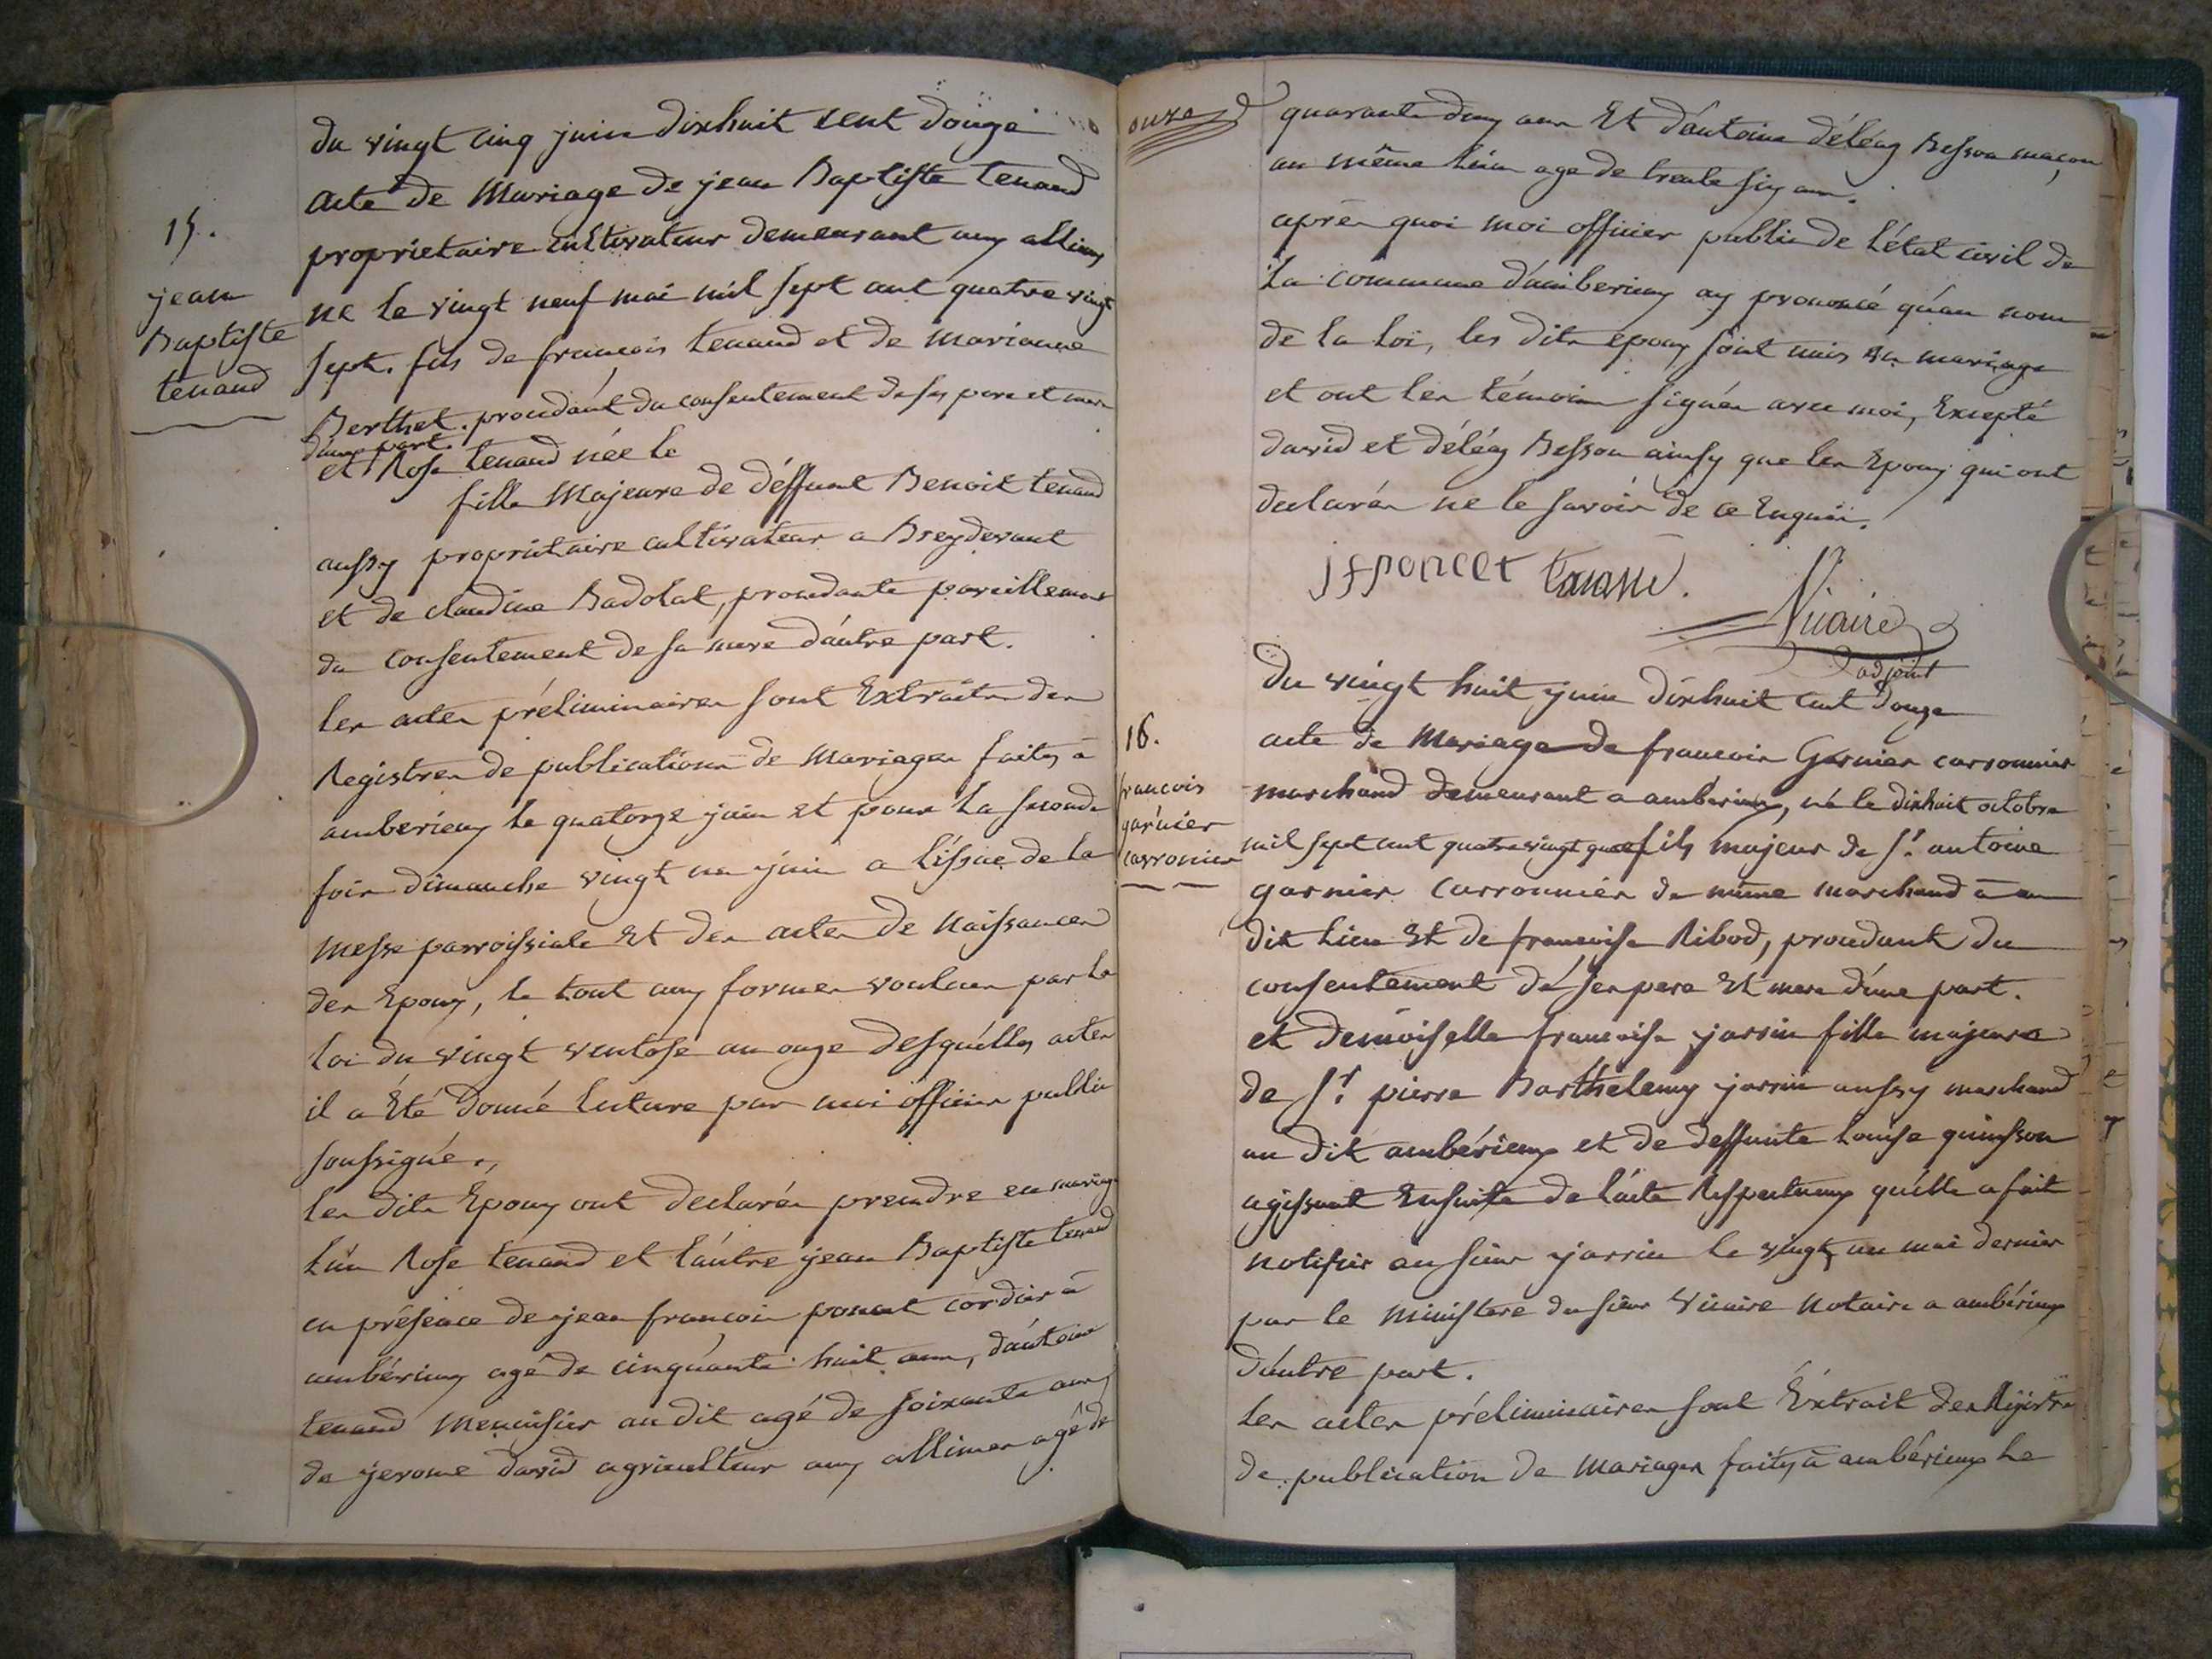 15.
jean
Baptiste
tenand
du vingt cinq juin dixhuit cent douze
acte de Mariage de jean Baptiste tenand
proprietaire cultivateur demeurant aux allimes
ne le vingt neuf mai mil sept cent quatre vingt
sept. fils de francois tenand et de Marianne
Berthet. procedant du consentement de ses pere et mere
d'une part.
et Rose tenand née le
fille Majeure de déffunt Benoit tenand
aussy proprietaire cultivateur a Breydevent
et de claudine Badolat, procedante pareillement
du consentement de sa mere d'autre part.
les actes préliminaires sont Extraits des
Registres de publications de Mariages faites à
amberieux le quatorze juin et pour la seconde
fois dimanche vingt un juin a l'issue de la
messe parroissiale Et des actes de Naissances
des Epoux, le tout aux formes voulues par la
loi du vingt ventose an onze desquelles actes
il a Été donné lecture par moi officier public
soussigné.,
les dits Epoux ont declarés prendre en mariage
l'un Rose tenand et l'autre jean Baptiste tenand
en présence de jean francois poncet cordier à
ambérieux agé de cinquante huit ans, d'antoine
tenand Menuisier au dit agé de soixante ans
de jerome david agriculteur aux allimes agé de
onze
quarante deux ans Et d'antoine déléaz Besson maçon
au même lieu age de trente six ans.
aprés quoi moi officier public de l'état civil de
la commune d'amberieux ay prononcé qu'au nom
de la loi, les dits epoux sont unis en mariage
et ont les témoins signés avec moi, Excepté
david et déléaz Besson ainsy que les Epoux qui ont
declarés ne le savoir de ce Enquis.
jfponcet tenand.
Vicaire
adjoint
16.
francois
garnier
carronier
du vingt huit juin dixhuit cent douze
acte de Mariage de francois Garnier carronnier
marchand demeurant a ambérieux, né le dixhuit octobre
mil sept cent quatre vingt fils majeur de Sr. antoine
garnier carronnier de même marchand à au
dit lieu Et de francoise Ribod, procedant du
consentement de ses pere Et mere d'une part.
et demoiselle francoise jarrin fille majeure
de Sr. pierre Barthelemy jarrin aussy marchand
au dit ambérieux et de deffunte Louise quinsson
agissant Ensuite de l'acte Respectueux qu'elle a fait
notifier au sieur jarrin le vingt un mai dernier
par le Ministere du sieur Vicaire Notaire a ambérieux
d'autre part.
les actes préliminaires sont Extrait des Régistres
de publication de Mariages faites à ambérieux le